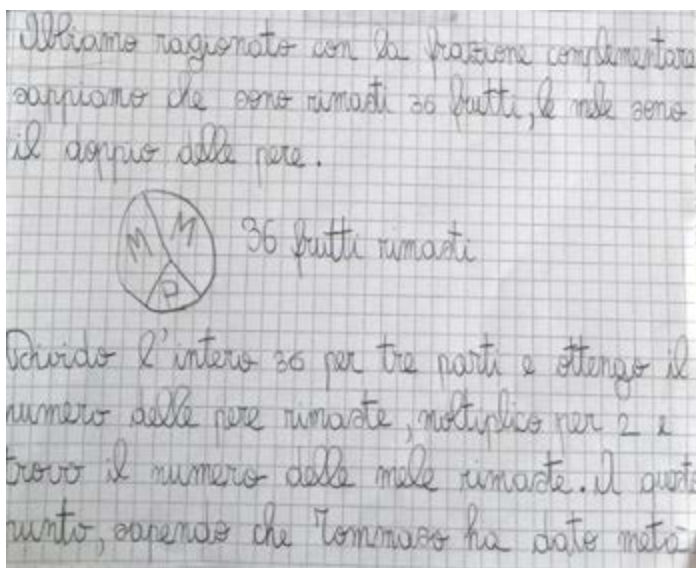 Abbiamo ragionato con la frazione complementare
sappiamo che sono rimasti 36 frutti, le mele sono
il doppio delle pere.
M M P 36 frutti rimasti
Divido l'intero 36 per tre parti e ottengo il
numero delle pere rimaste, moltiplico per 2 e
trovo il numero delle mele rimaste. A questo
punto, sapendo che Tommaso ha dato metà